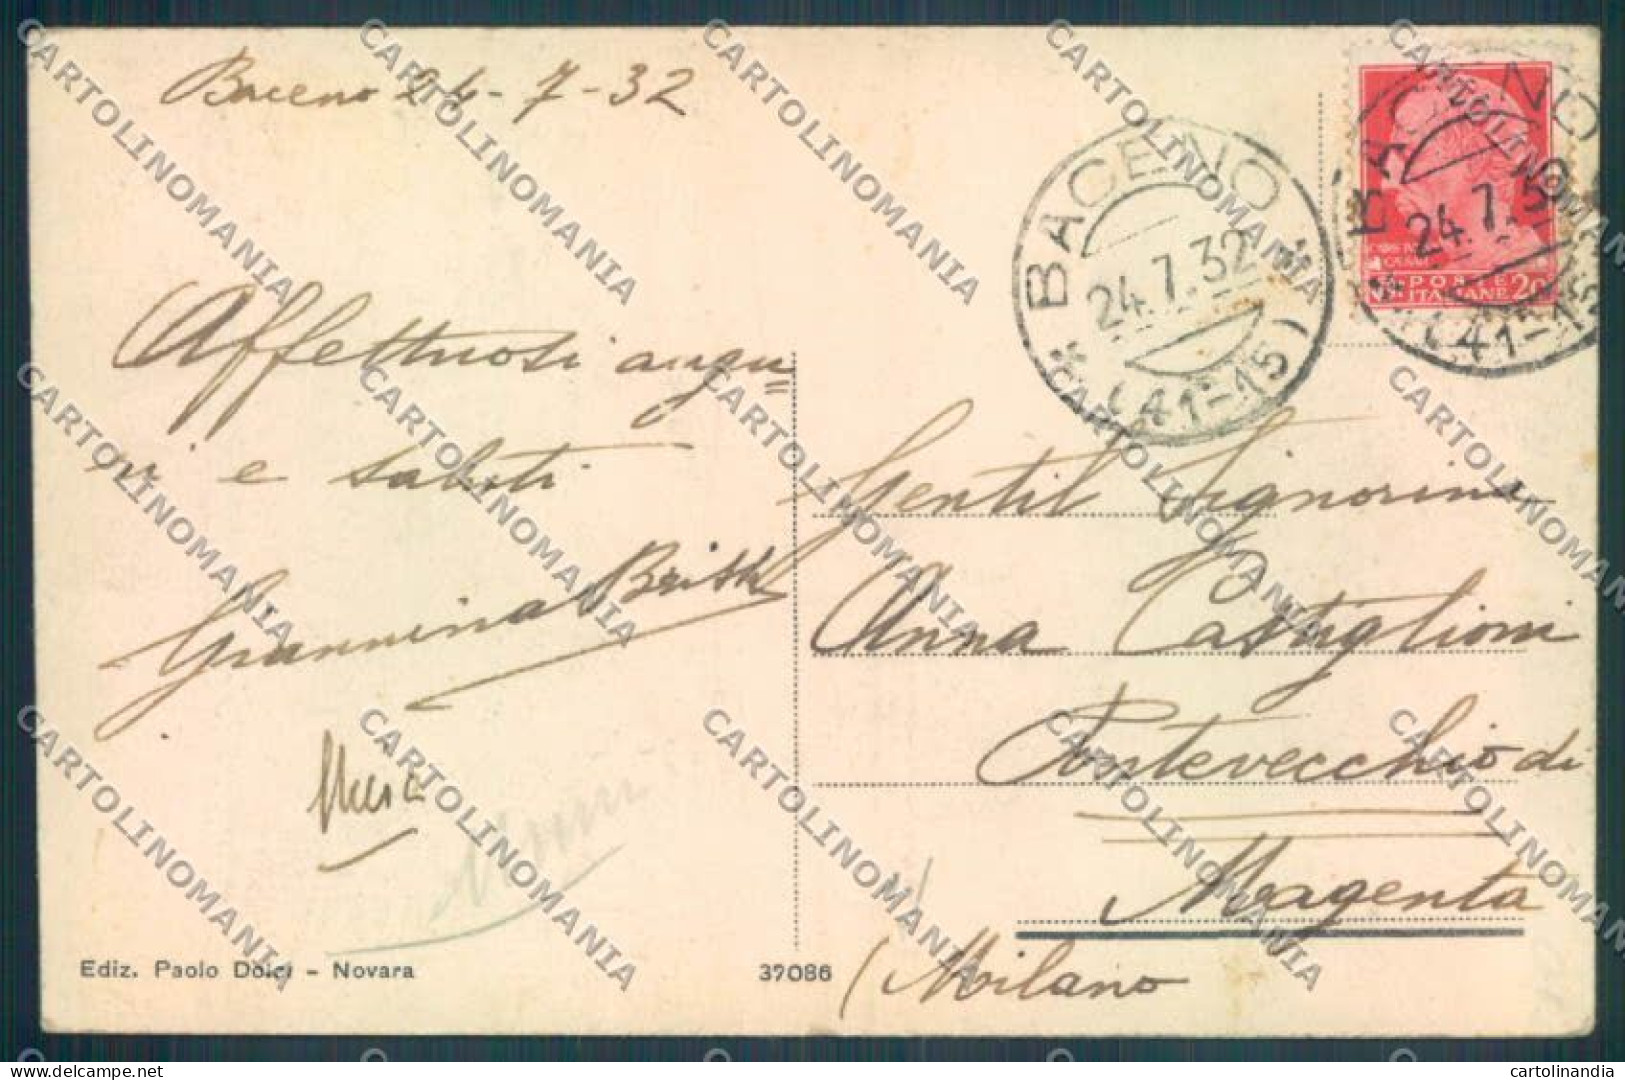 Baceno 24-7-32
BACENO
24.7.32
* (41-15)
BACENO
24.7.3
(41-15
POSTE
ITALIANE 20
Affettuosi augu=
ri e saluti
Giannina
Gentil Signorina
Anna Castiglioni
Pontevecchio di
Magenta
(Milano
Ediz. Paolo Dolci - Novara
37086
CARTOLINOMANIA
delcampe.net
cartolinandia